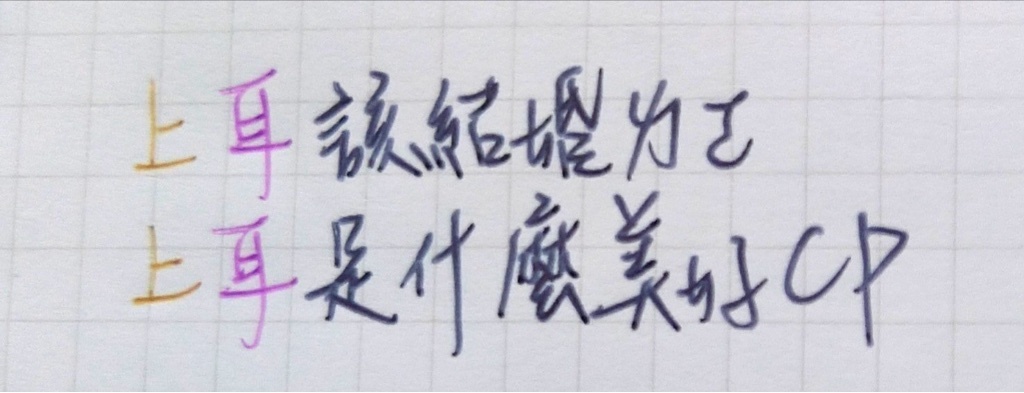 上耳該結婚为了
上耳是什麼美好CP